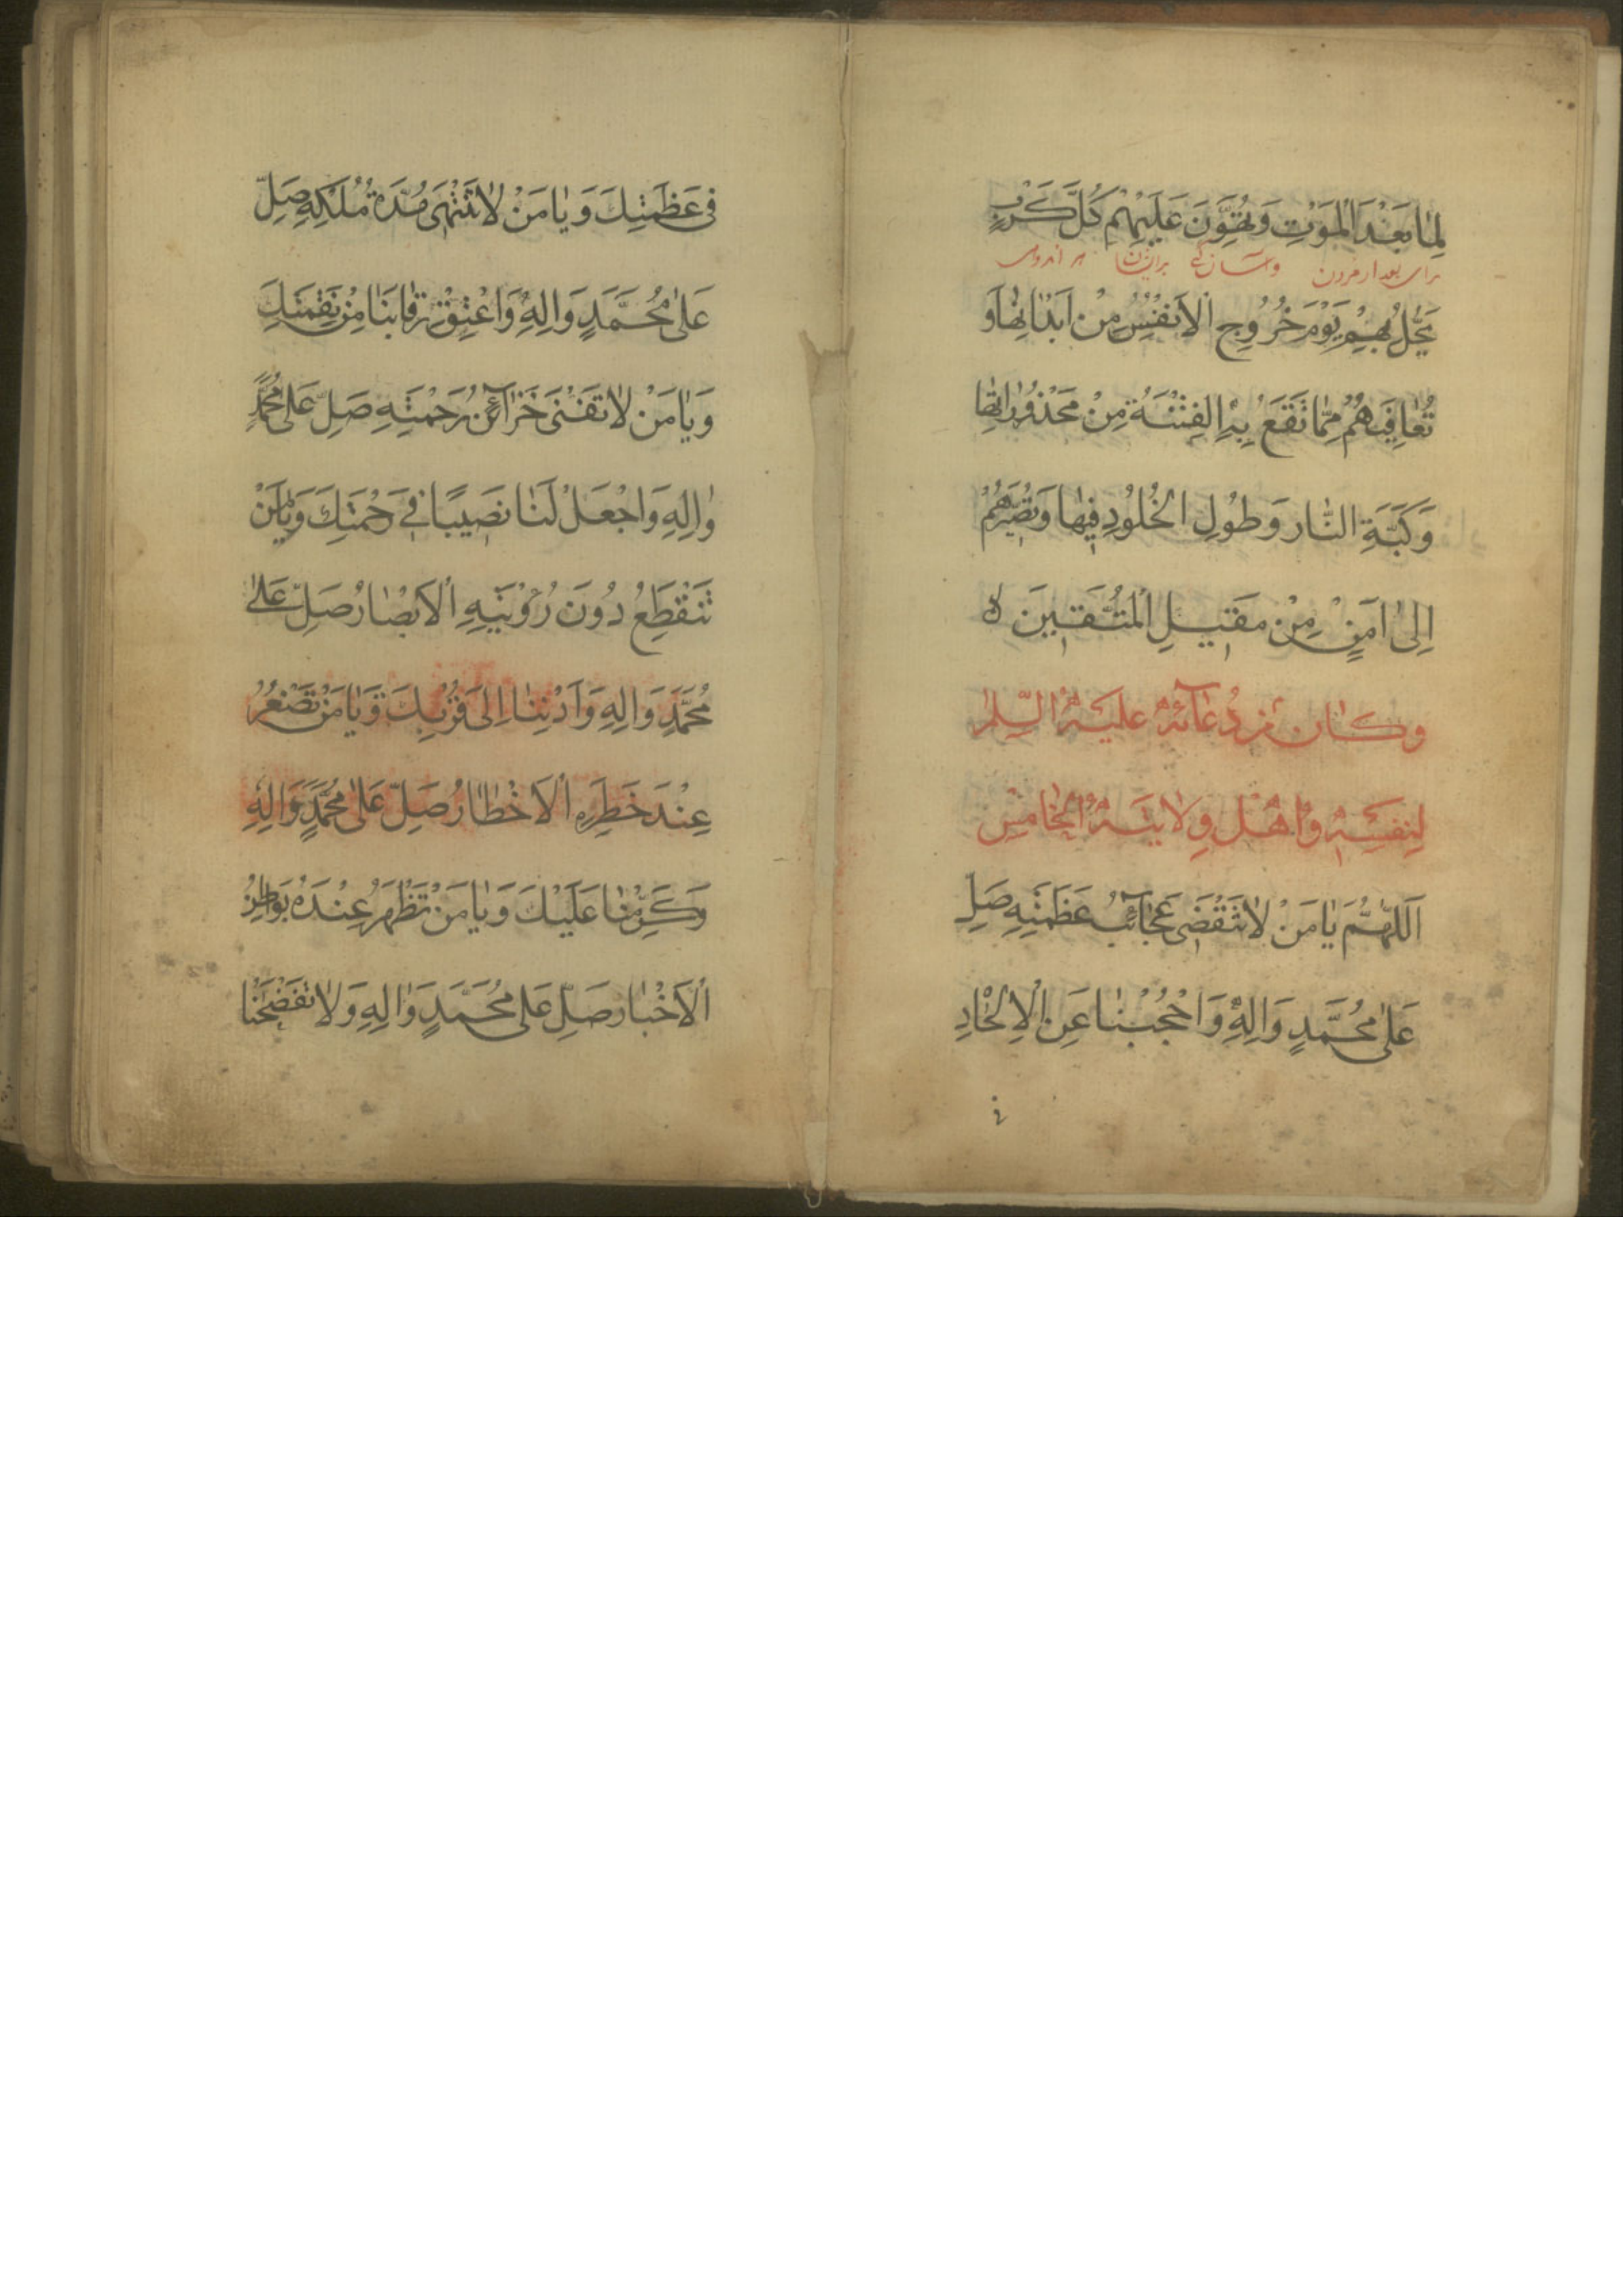 لِمَا بَعْدَ الْمَوْتِ وَتُهَوِّنَ عَلَيْهِمْ كُلَّ كَرْبٍ
برای بعد از مردن وآسان کنی برایشان هر اندوهی
يَحُلُّ بِهِمْ يَوْمَ خُرُوجِ الْأَنْفُسِ مِنْ أَبْدَانِهَا وَ
تُعَافِيَهُمْ مِمَّا تَقَعُ بِهِ الْفِتْنَةُ مِنْ مَحْذُورَاتِهَا
وَكَبَّةِ النَّارِ وَطُولِ الْخُلُودِ فِيهَا وَتُصَيِّرَهُمْ
إِلَى أَمْنٍ مِنْ مَقِيلِ الْمُتَّقِينَ
وَكَانَ مِنْ دُعَائِهِ عَلَيْهِ السَّلَمُ
لِنَفْسِهِ وَأَهْلِ وِلَايَتِهِ الْخَامِسُ
اَللّٰهُمَّ يَا مَنْ لَا تَنْقَضِي عَجَائِبُ عَظَمَتِهِ صَلِّ
عَلَى مُحَمَّدٍ وَالِهِ وَاحْجُبْنَا عَنِ الْإِلْحَادِ
فِي عَظَمَتِكَ وَيَا مَنْ لَا تَنْتَهِي مُدَّةُ مُلْكِهِ صَلِّ
عَلَى مُحَمَّدٍ وَالِهِ وَاعْتِقْ رِقَابَنَا مِنْ نَقِمَتِكَ
وَيَا مَنْ لَا تَفْنَى خَزَائِنُ رَحْمَتِهِ صَلِّ عَلَى مُحَمَّدٍ
وَالِهِ وَاجْعَلْ لَنَا نَصِيبًا فِي رَحْمَتِكَ وَيَا مَنْ
تَنْقَطِعُ دُونَ رُؤْيَتِهِ الْأَبْصَارُ صَلِّ عَلَى
مُحَمَّدٍ وَالِهِ وَأَدْنِنَا إِلَى قُرْبِكَ وَيَا مَنْ تَصْغُرُ
عِنْدَ خَطَرِهِ الْأَخْطَارُ صَلِّ عَلَى مُحَمَّدٍ وَالِهِ
وَكَرِّمْنَا عَلَيْكَ وَيَا مَنْ تَظْهَرُ عِنْدَهُ بَوَاطِنُ
الْأَخْبَارِ صَلِّ عَلَى مُحَمَّدٍ وَالِهِ وَلَا تَفْضَحْنَا